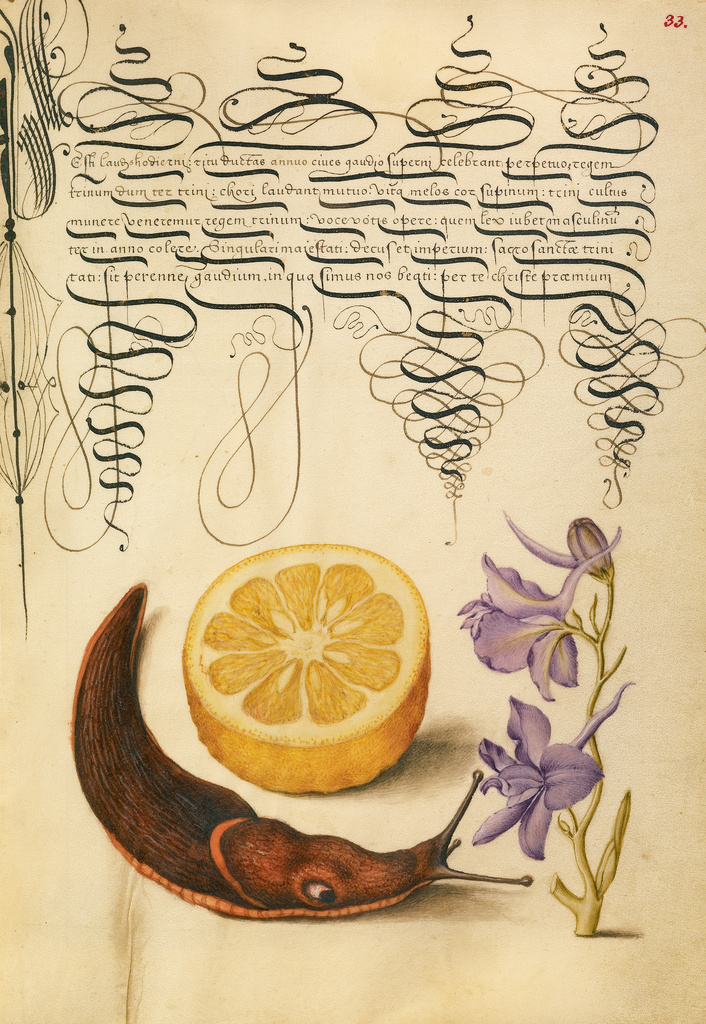 33.
Est laus hodierni: diu ductas annuo cives gaudio superni celebrant perpetuo, regem
trinum dum ter trini: chori laudant mutuo. Vita melos cor supinum: trini cultus
munere veneremur, regem trinum: voce votis opere: quem lex iubet masculinū
ter in anno colere. Singulari maiestati: decus et imperium: sacro sanctæ trini
tati: sit perenne, gaudium, in qua simus nos beati: per te christe præmium